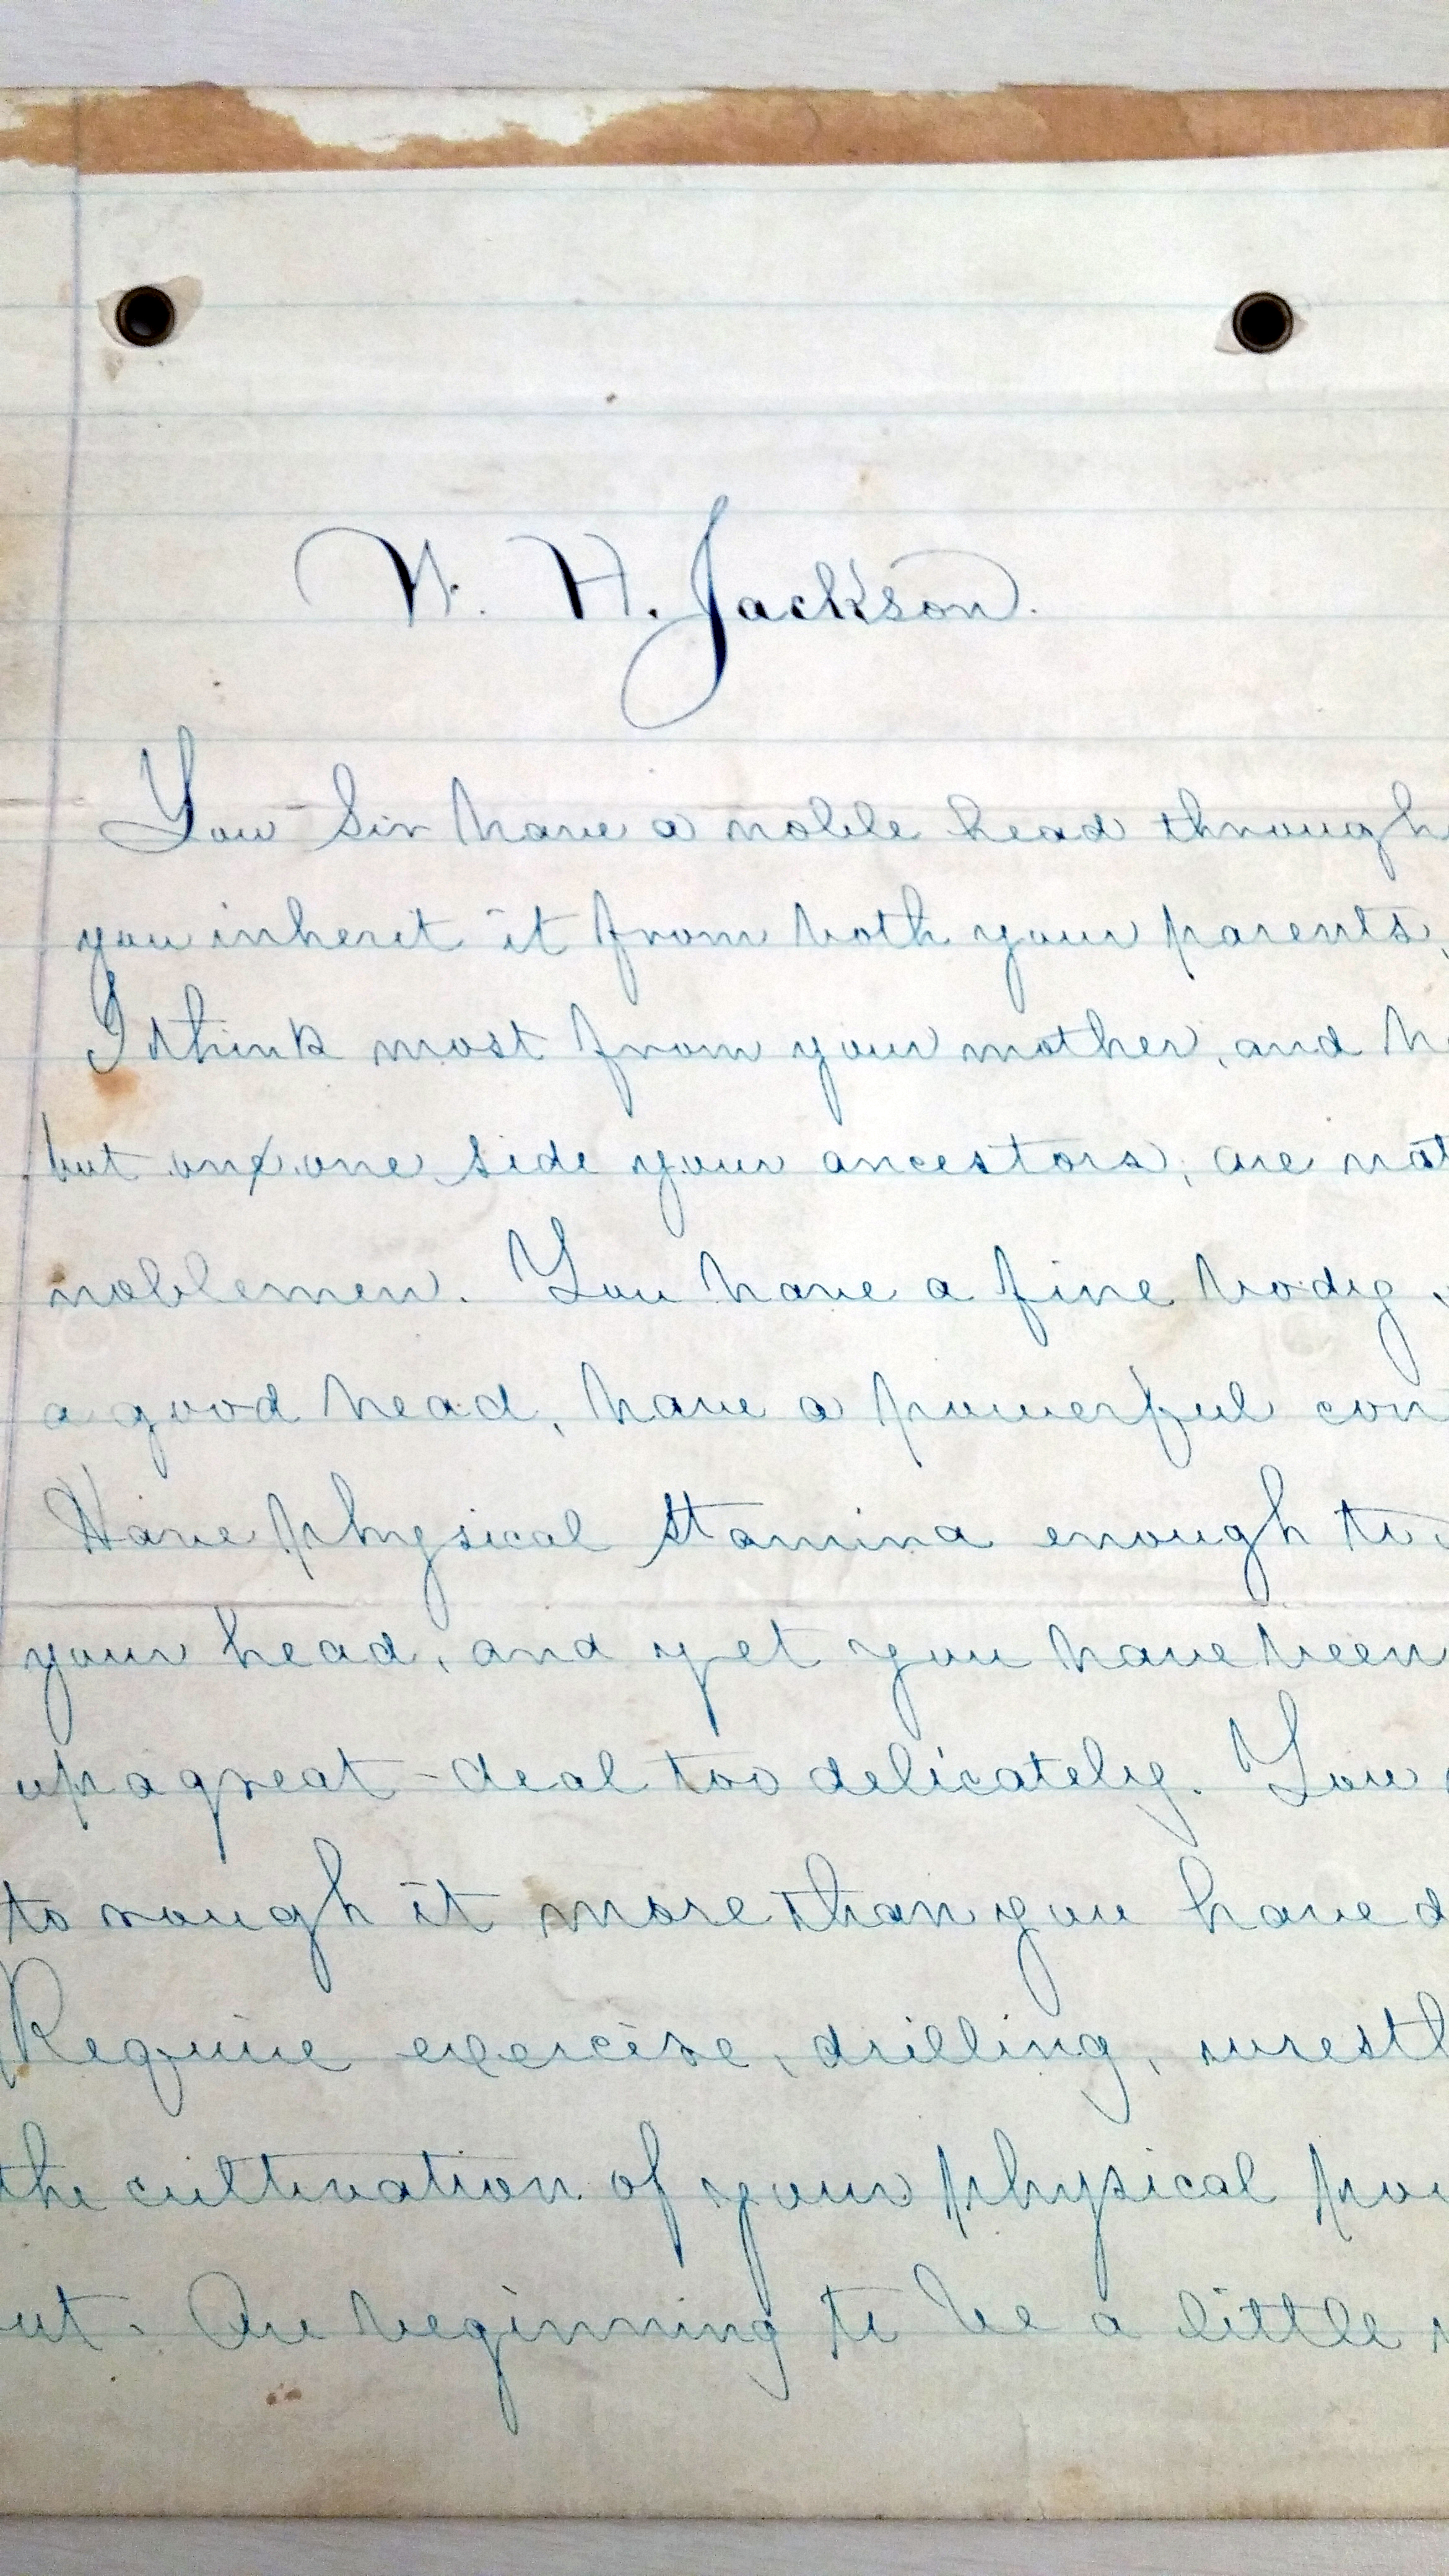 W. H. Jackson.
You Sir have a noble head through
you inherit it from both your parents,
I think most from your mother, and
but one side your ancestors, are not
noblemen. You have a fine body,
a good head, have a powerful con
Have physical stamina enough to
your head, and yet you have been
up a great-deal too delicately. You
to rough it more than you have d
Require exercise, drilling, wrestl
the cultivation of your physical pow
ut. Are beginning to be a little